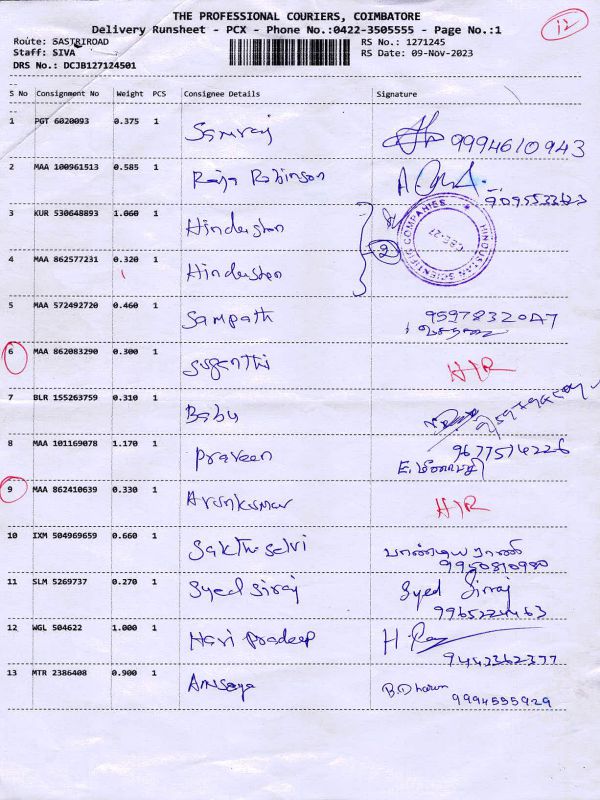 12
THE PROFESSIONAL COURIERS, COIMBATORE
Delivery Runsheet - PCX - Phone No.:0422-3505555 - Page No.:1
Route: SASTRIROAD RS No.: 1271245
Staff: SIVA RS Date: 09-Nov-2023
DRS No.: DCJB127124501
S No Consignment No Weight PCS Consignee Details Signature
1 PGT 6020093 0.375 1 9994610943
2 MAA 100961513 0.585 1 Raja Robinson
3 KUR 530648893 1.060 1 Hindustan
HINDUSTAN SCIENTIFIC COMPANIES
CBE-27
2
4 MAA 862577231 0.320 1 Hindustan
5 MAA 572492720 0.460 1 Sampath 9597832047
6 MAA 862083290 0.300 1 Suganthi H/R
7 BLR 155263759 0.310 1 Babu
8 MAA 101169078 1.170 1 Praveen 9677514226
9 MAA 862410639 0.330 1 Arunkumar H/R
10 IXM 504969659 0.660 1 Sakthi selvi பாண்டிய ராணி
9950810980
11 SLM 5269737 0.270 1 Syed Siraj Syed Sirraj
12 WGL 504622 1.000 1 Hari pradeep
9443362377
13 MTR 2386408 0.900 1 B. Dharun 9994555929